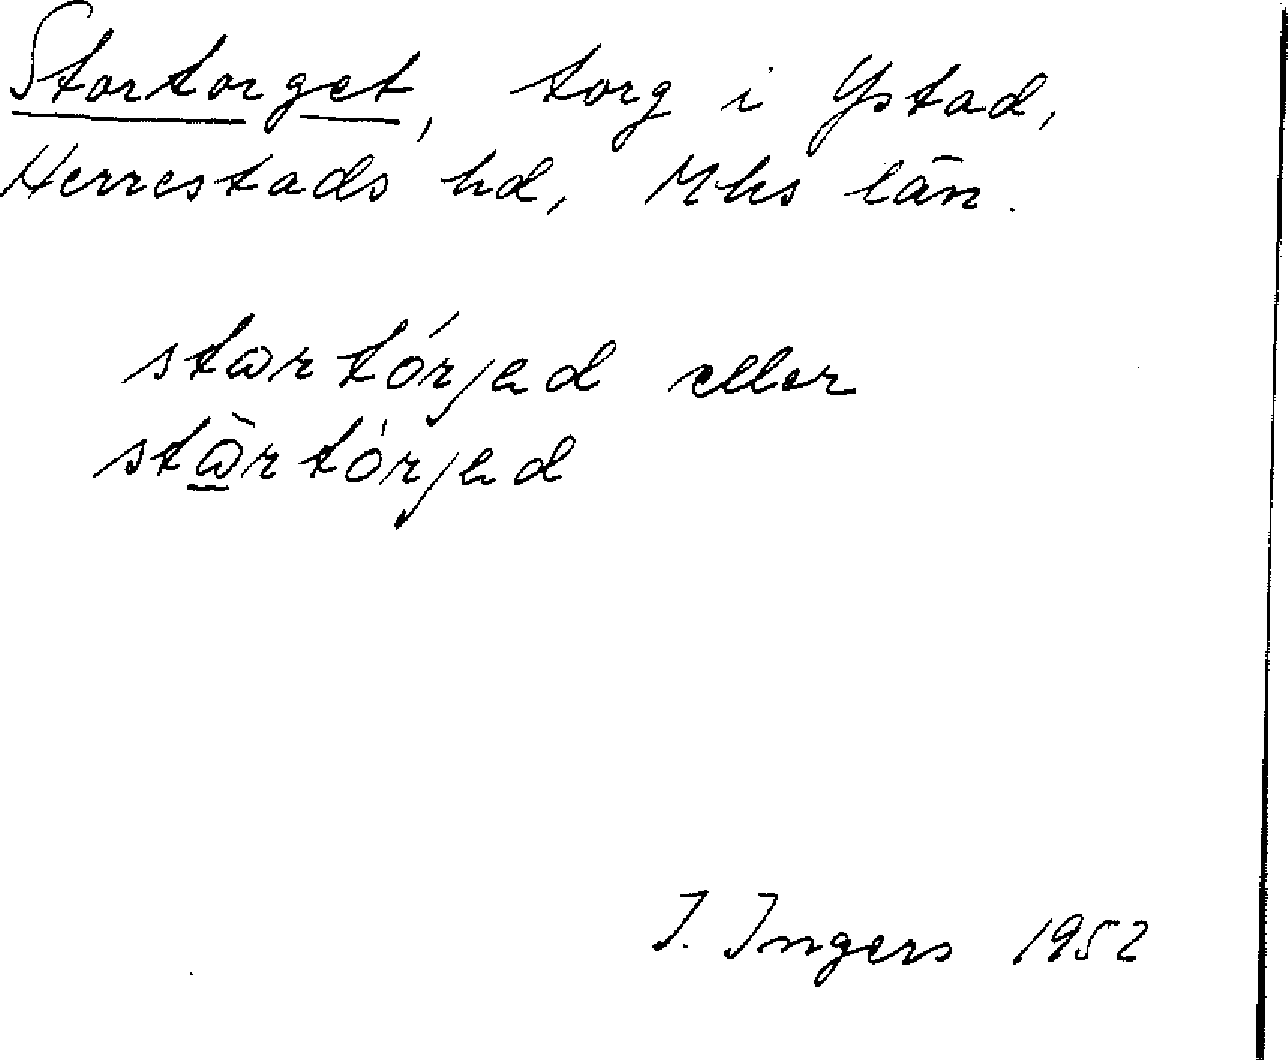 Stortorget, torg i Ystad,
Herrestads hd, Mhs län.
stωrtórjəd eller
stὼ̠rtórjəd
I. Ingers 1952